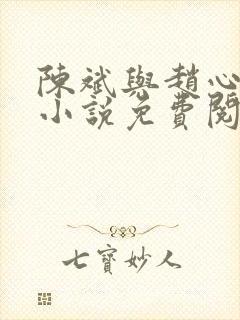 陳斌與趙心
小說免費閱
七寶妙人